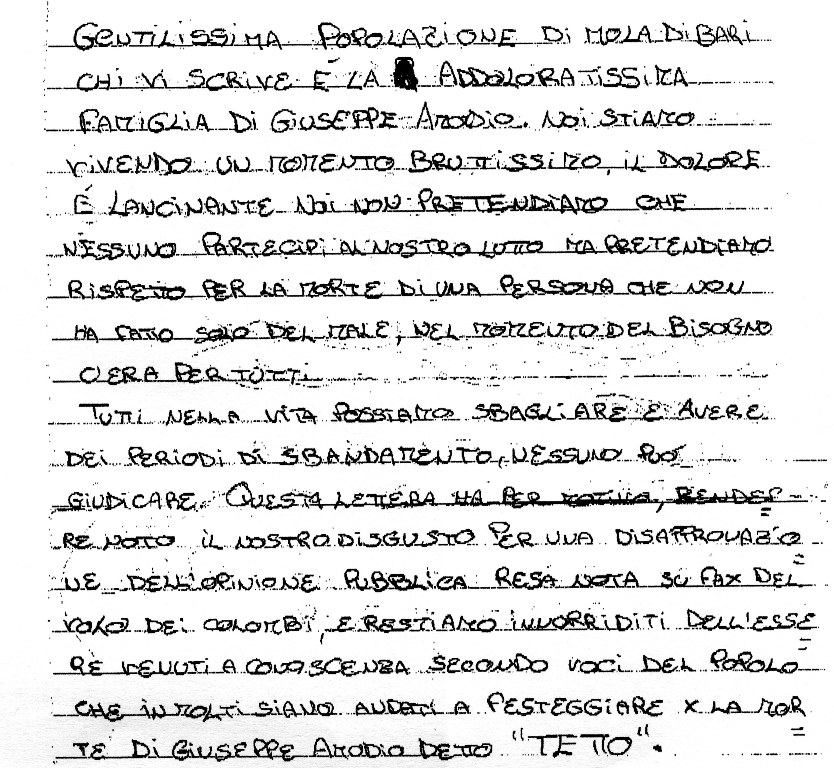 GENTILISSIMA POPOLAZIONE DI MOLA DI BARI
CHI VI SCRIVE È LA ADDOLORATISSIMA
FAMIGLIA DI GIUSEPPE AMODIO. NOI STIAMO
VIVENDO UN MOMENTO BRUTTISSIMO, IL DOLORE
É LANCINANTE NOI NON PRETENDIAMO CHE
NESSUNO PARTECIPI AL NOSTRO LUTTO MA PRETENDIAMO
RISPETTO PER LA MORTE DI UNA PERSONA CHE NON
HA FATTO SOLO DEL MALE, NEL MOMENTO DEL BISOGNO
C'ERA PER TUTTI
TUTTI NELLA VITA POSSIAMO SBAGLIARE E AVERE
DEI PERIODI DI SBANDAMENTO, NESSUNO PUÓ
GIUDICARE. QUESTA LETTERA HA PER MOTIVO, RENDER=
RE NOTO IL NOSTRO DISGUSTO PER UNA DISAPPROVAZIO=
NE DELL'OPINIONE PUBBLICA RESA NOTA SU FAX DEL
VOLO DEI COLOMBI, E RESTIAMO INNORRIDITI DELL'ESSE=
RE VENUTI A CONOSCENZA SECONDO VOCI DEL POPOLO
CHE IN MOLTI SIANO ANDATI A FESTEGGIARE X LA MOR=
TE DI GIUSEPPE AMODIO DETTO "TETTO".